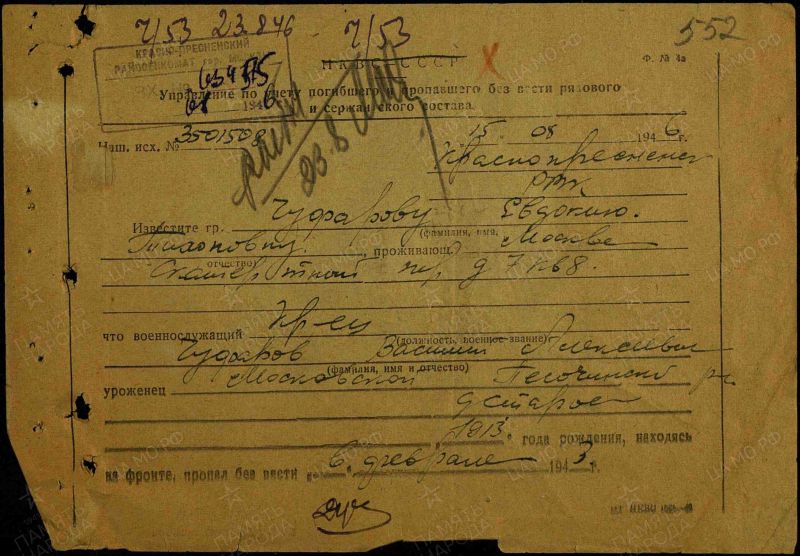 7/53 23.8 46 7/53
552
КРАСНО-ПРЕСНЕНСКИЙ
РАЙВОЕНКОМАТ гор. Москвы
Н К В С С С С Р
Х
Ф. № 4а
Управление по учету погибшего и пропавшего без вести рядового
и сержантского состава.
Наш. исх. № 3501508
15 08 1946 г.
Краснопресненск
РВК
Известите гр. Чуфарову Евдокию
(фамилия, имя,
Тихоновну, проживающ. Москве
отчество)
Скатертный пер д 7 кв 8.
что военнослужащий кр-ец
(должность, военное звание)
Чуфаров Василий Алексеевич
(фамилия, имя и отчество)
уроженец Московской Песочинский р-н
д Старое
1913. года рождения, находясь
на фронте, пропал без вести 6 феврале 1943 г.